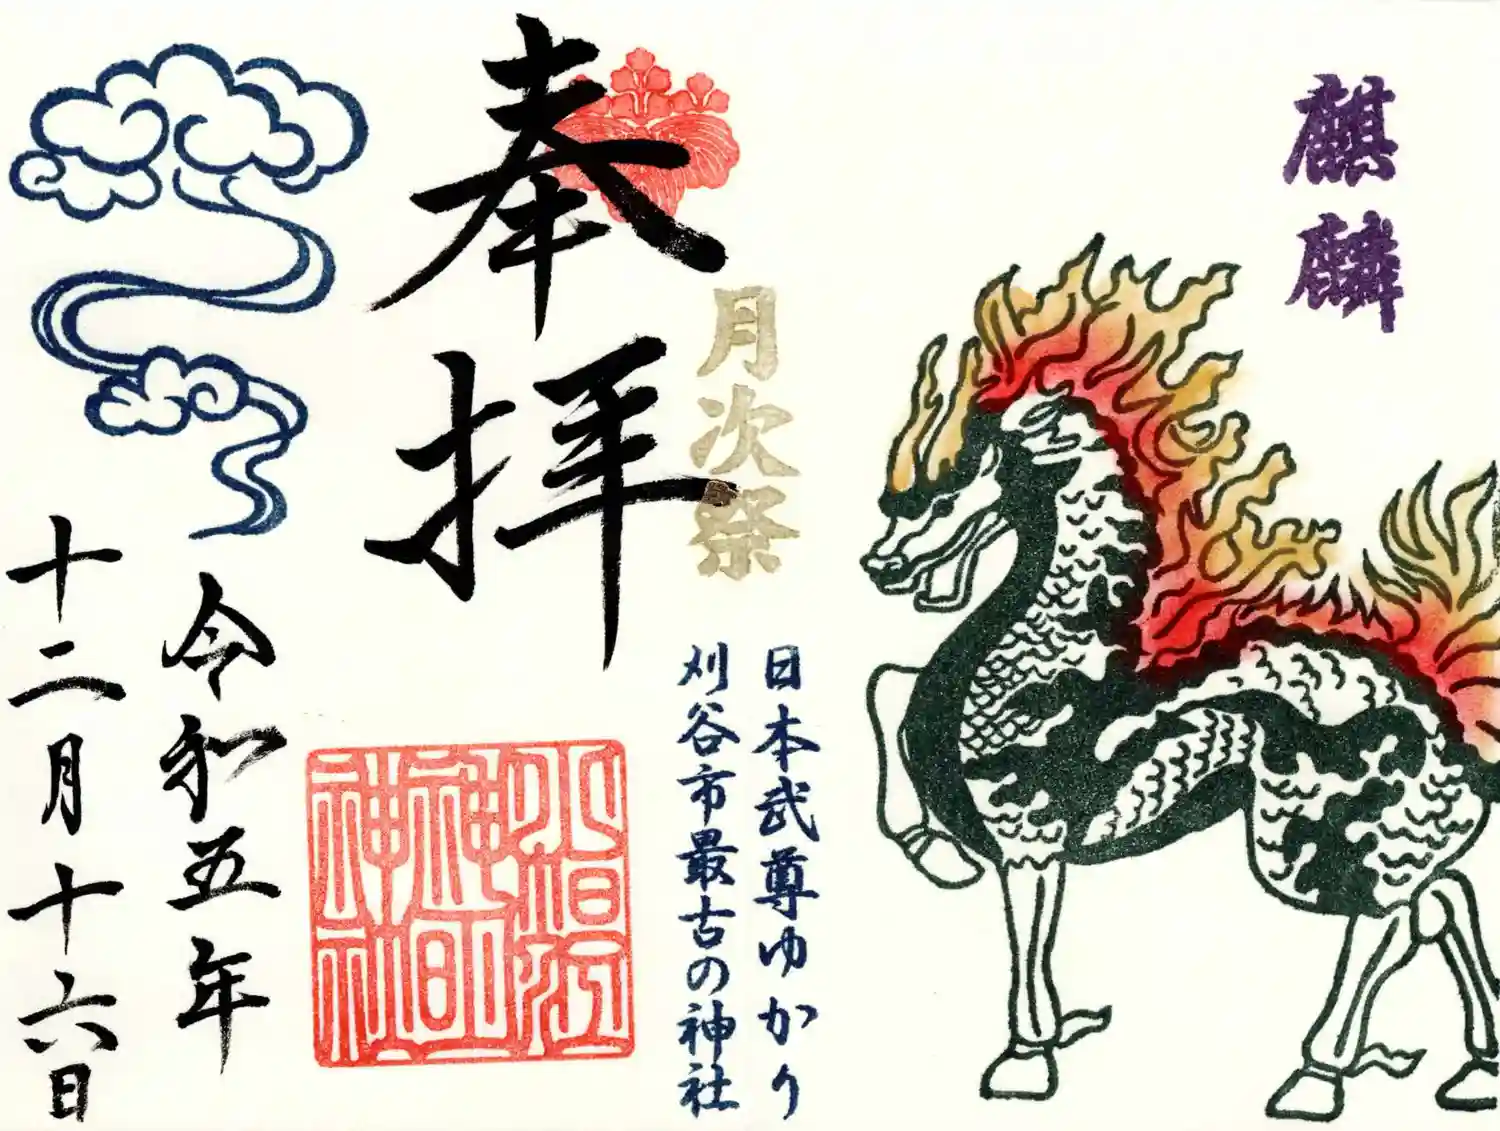 麒麟
月次祭
日本武尊ゆかり
刈谷市最古の神社
奉拝
小垣江
神明
神社
令和五年
十二月十六日